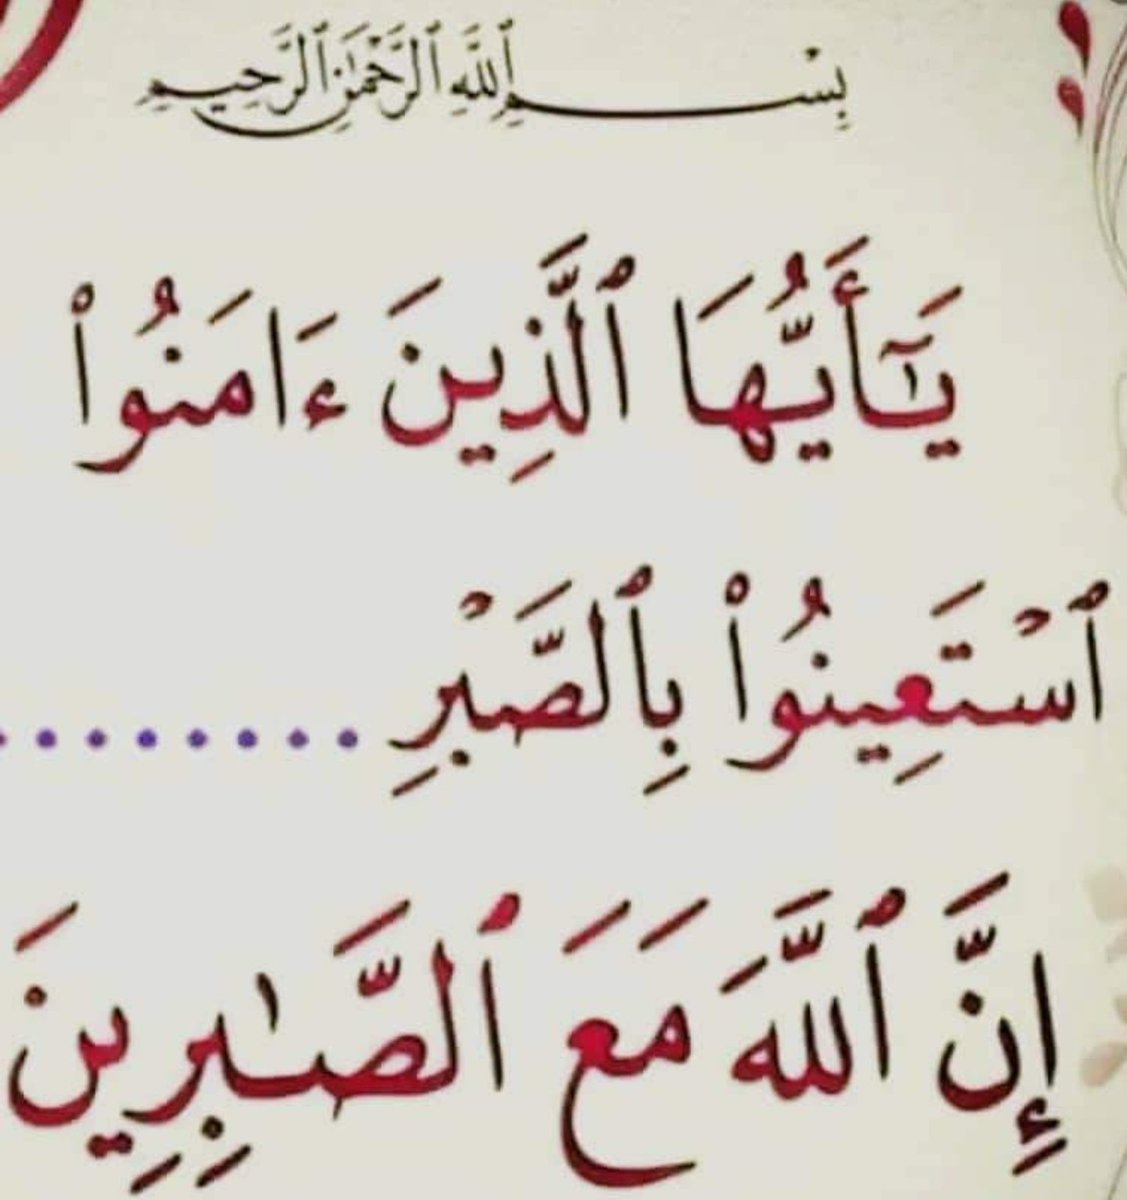 بِسْمِ ٱللَّهِ ٱلرَّحْمَٰنِ ٱلرَّحِيمِ
يَٰٓأَيُّهَا ٱلَّذِينَ ءَامَنُوا۟
ٱسْتَعِينُوا۟ بِٱلصَّبْرِ .........
إِنَّ ٱللَّهَ مَعَ ٱلصَّٰبِرِينَ